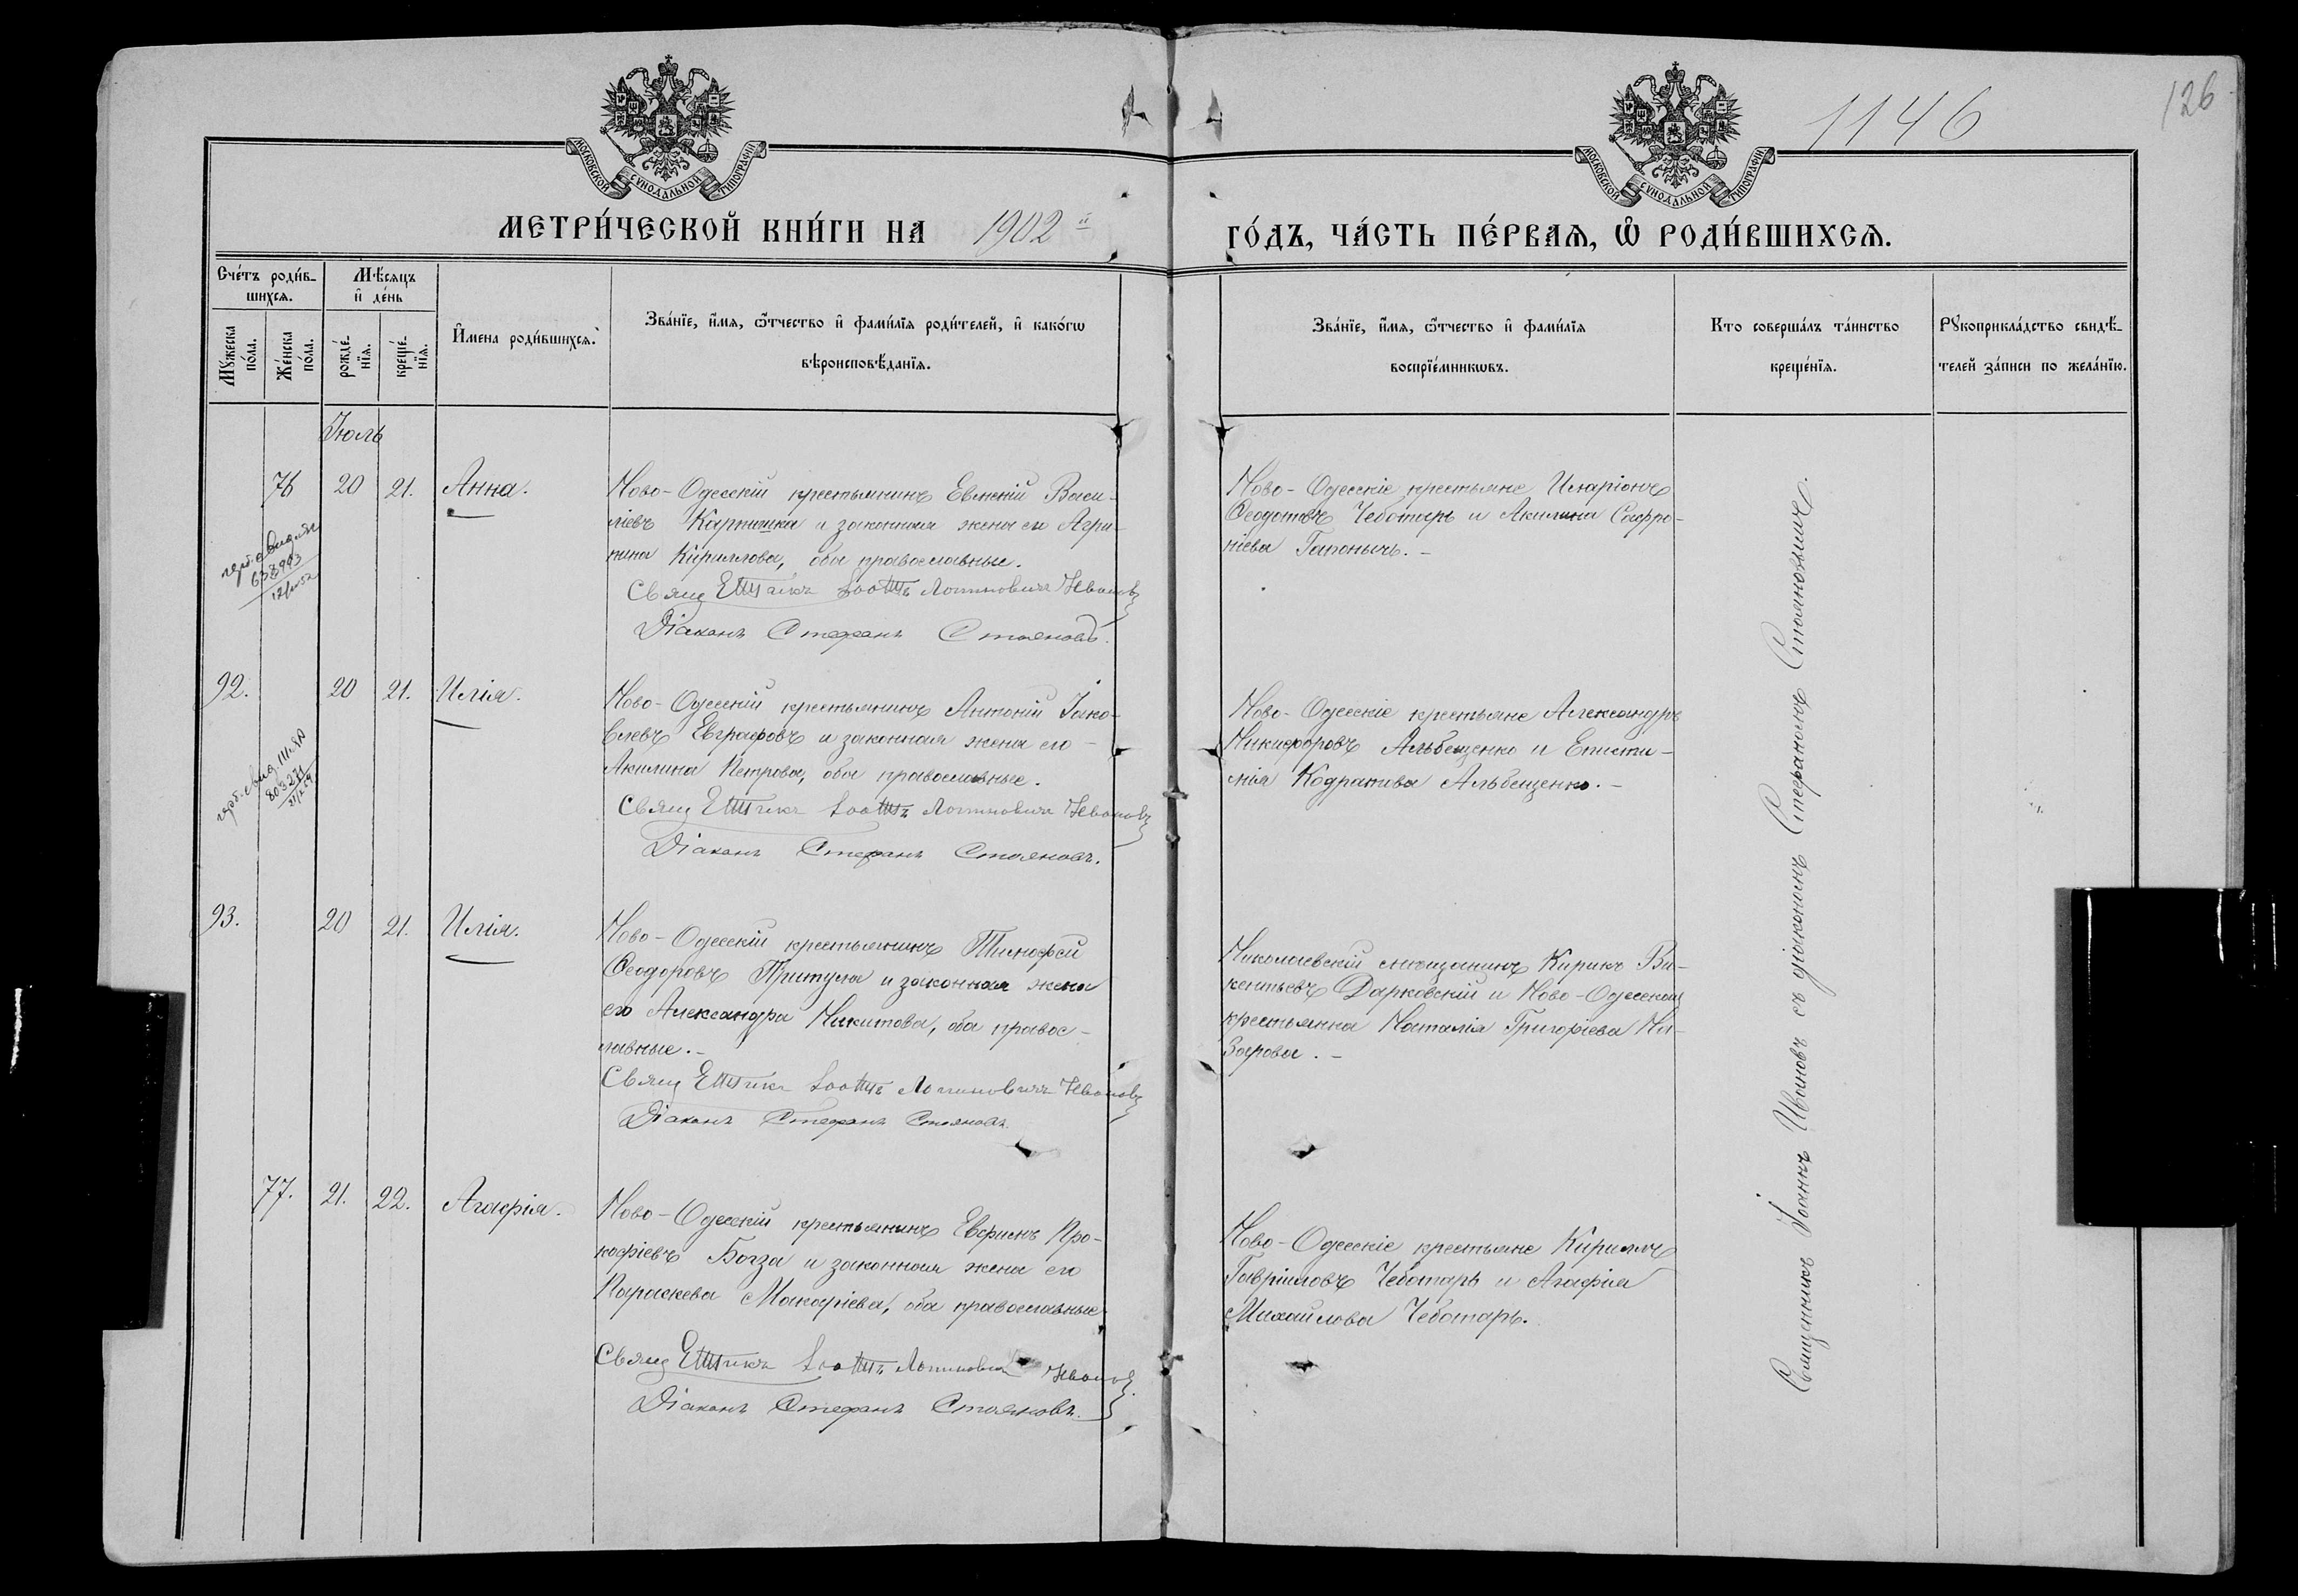 1146
126
МОСКОВСКОЙ СѴНОДАЛЬНОЙ ТИПОГРАФІИ
МОСКОВСКОЙ СѴНОДАЛЬНОЙ ТИПОГРАФІИ
МЕТРИ́ЧЕСКОЙ КНИ́ГИ НА 1902 й
ГО́ДЪ, ЧА́СТЬ ПЕ́РВАѦ, Ѡ҆ РОДИ́ВШИХСѦ.
Сче́тъ роди́в-
шихсѧ.
Мꙋ́жеска
по́ла.
Же́нска
по́ла.
Мѣ́сѧцъ
и҆ де́нь
рожде́-
нїѧ.
креще́-
нїѧ.
И҆мена̀ роди́вшихсѧ.
Зва́нїе, и҆́мѧ, ѻ҆́тчество и҆ фами́лїѧ роди́телей, и҆ како́гѡ
вѣроисповѣ́данїѧ.
Зва́нїе, и҆́мѧ, ѻ҆́тчество и҆ фами́лїѧ
воспрїе́мникѡвъ.
Кто̀ соверша́лъ та́инство
креще́нїѧ.
Рꙋкоприкла́дство свидѣ́-
телей за́писи по жела́нїю.
Іюль
76 20 21. Анна.
Ново-Одесскій крестьянинъ Евгеній Васи-
ліевъ Карпишка и законная жена его Агри-
пина Кириллова, оба православные.
Свящ Логиновичъ Ивановъ
Діаконъ Стефанъ Стояновъ.
Ново-Одесскіе крестьяне Иларіонъ
Ѳеодотовъ Чеботарь и Акилина Софро-
ніева Гапонычъ.-
92. 20 21. Илія.
Ново-Одесскій крестьянинъ Антоній Іако-
влевъ Евграфовъ и законная жена его-
Акилина Петрова, оба православные.
Свящ Логиновичъ Ивановъ
Діаконъ Стефанъ Стояновъ.
Ново-Одесскіе крестьяне Александръ
Никифоровъ Альбещенко и Еписти-
мія Кодратова Альбещенко.-
93. 20 21. Илія.
Ново-Одесскій крестьянинъ Тимофей
Ѳеодоровъ Притула и законная жена
его Александра Никитова, оба правос-
лавные.-
Свящ Логиновичъ Ивановъ
Діаконъ Стефанъ Стояновъ.
Николаевскій мѣщанинъ Кирикъ Ви-
кентьевъ Дарковскій и Ново-Одесская
крестьянка Наталія Григоріева На-
зарова.-
77. 21. 22. Агафія.
Ново-Одесскій крестьянинъ Евфимъ Про-
кофіевъ Богза и законная жена его
Параскева Макаріева, оба православные.
Свящ Логиновичъ Ивановъ
Діаконъ Стефанъ Стояновъ.
Ново-Одесскіе крестьяне Кириллъ
Гавриловъ Чеботарь и Агафія
Михайлова Чеботарь.
Священникъ Іоаннъ Ивановъ съ діакономъ Стефаномъ Стояновымъ.